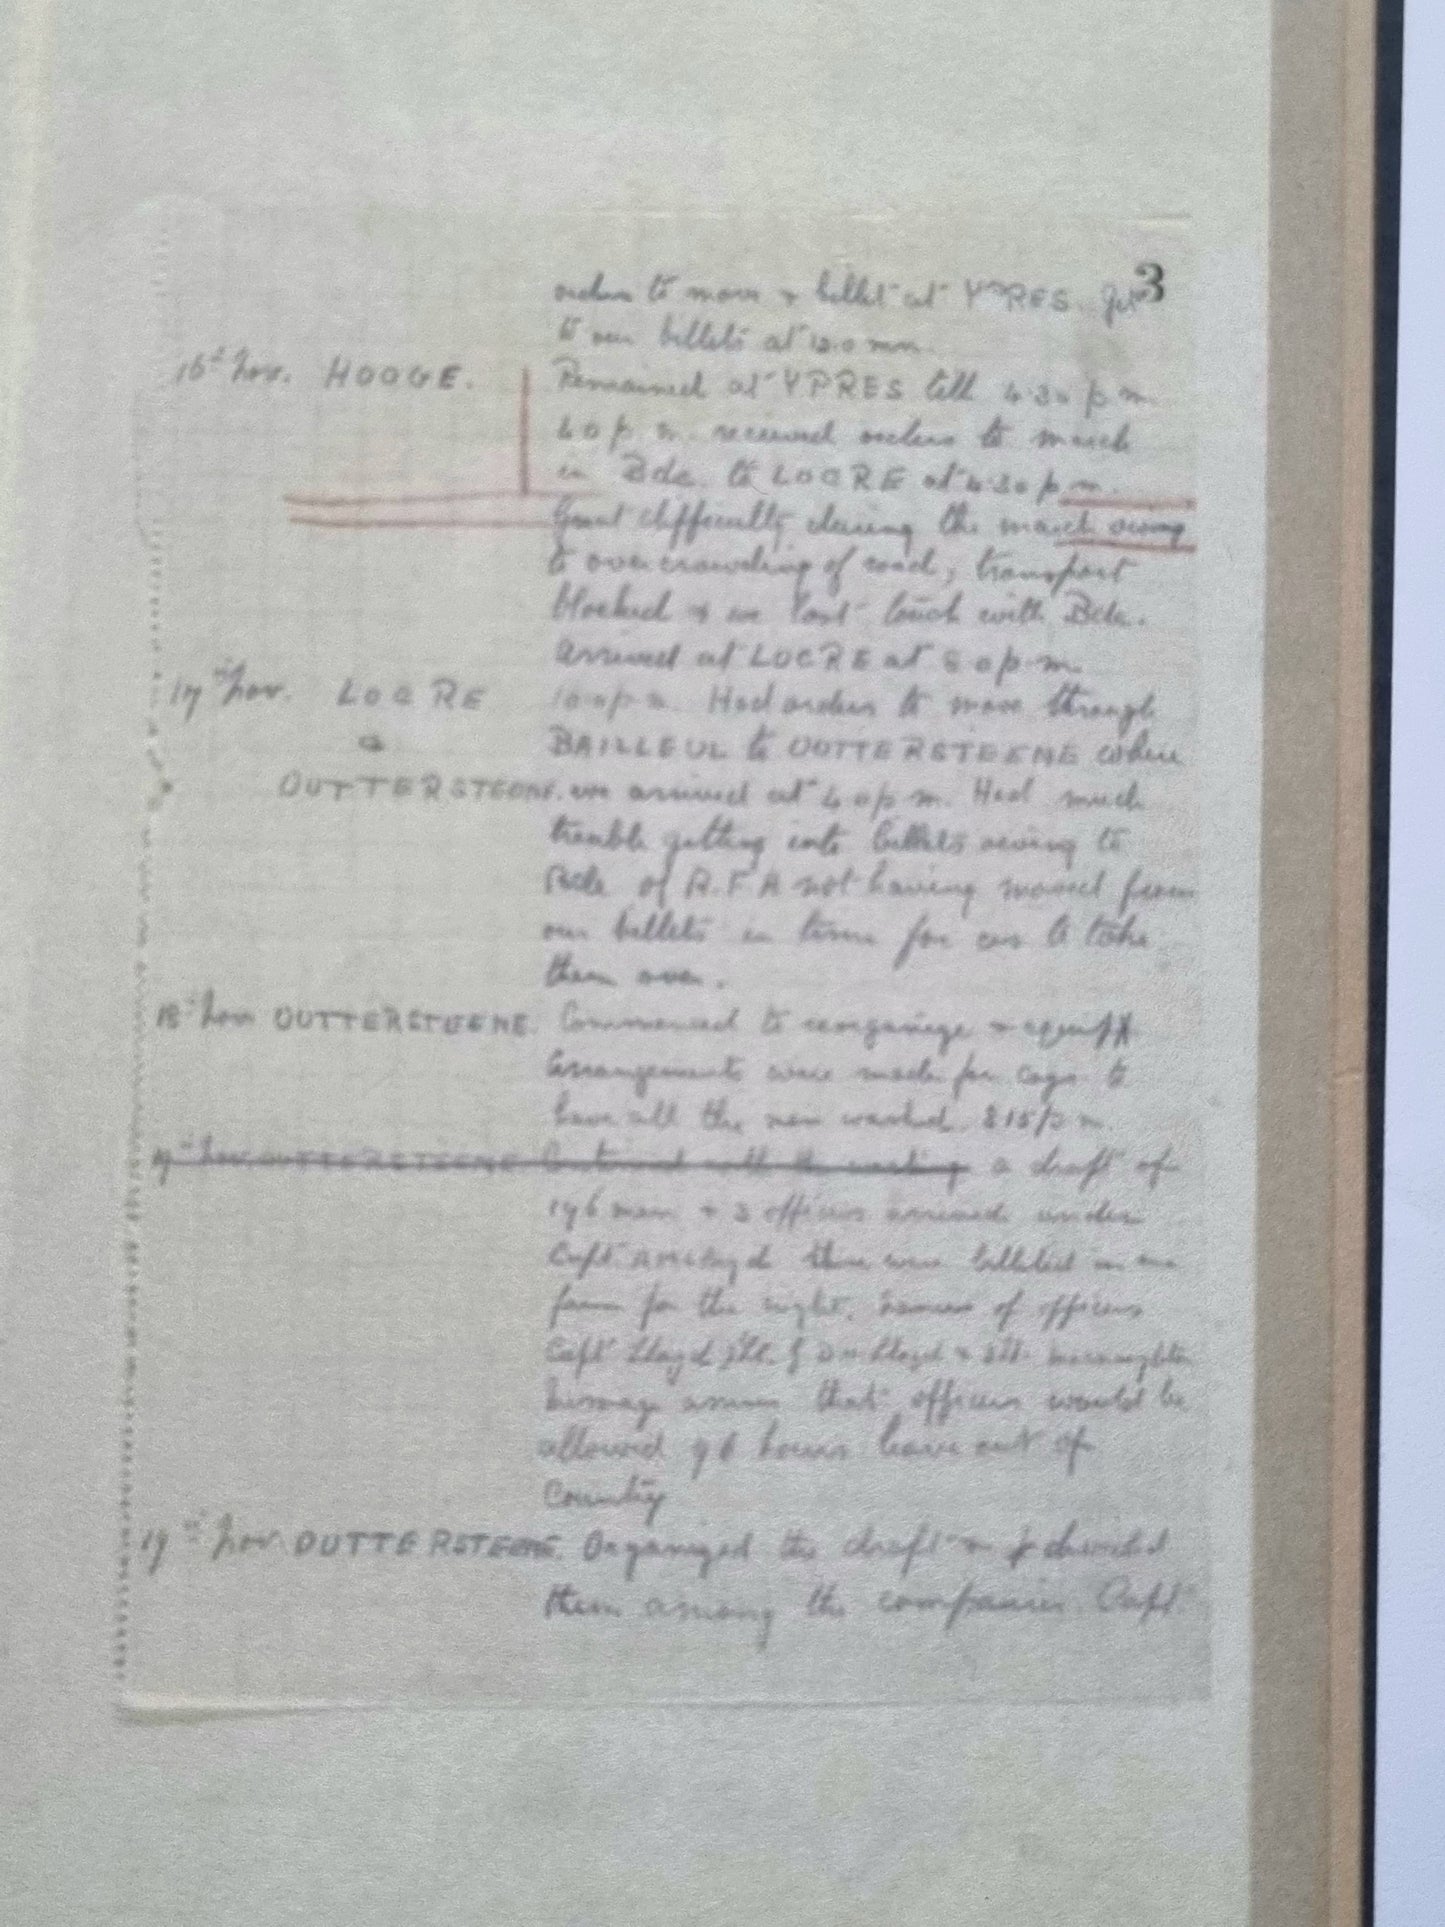 3
orders to move + billet at YPRES. Got
to our billets at 12.0 mn.
16th Nov. HOOGE. Remained at YPRES till 4.30 p.m.
4.0 p.m. received orders to march
in Bde. to LOCRE at 4.30 p.m.
Great difficulty during the march owing
to overcrowding of road, transport
blocked & we lost touch with Bde.
arrived at LOCRE at 8.0 p.m.
17th Nov. LOCRE 10.0 p.m. Had orders to move through
BAILLEUL to OUTTERSTEENE where
OUTTERSTEENE. we arrived at 4.0 p.m. Had much
trouble getting into billets owing to
Bde of R.F.A not having moved from
our billets in time for us to take
them over.
18th Nov OUTTERSTEENE. Commenced to reorganize + equip
arrangements were made for Coys. to
have all the men washed. 8.15 p.m.
19th Nov. OUTTERSTEENE Continued with the washing a draft of
196 men + 3 officers arrived under
Capt these were billeted in one
farm for the night. Names of officers
Capt Lloyd Lloyd +
message arrives that officers would be
allowed 96 hours leave out of
Country
19th Nov. OUTTERSTEENE. Organized the draft + divided
them among the companies. Capt.